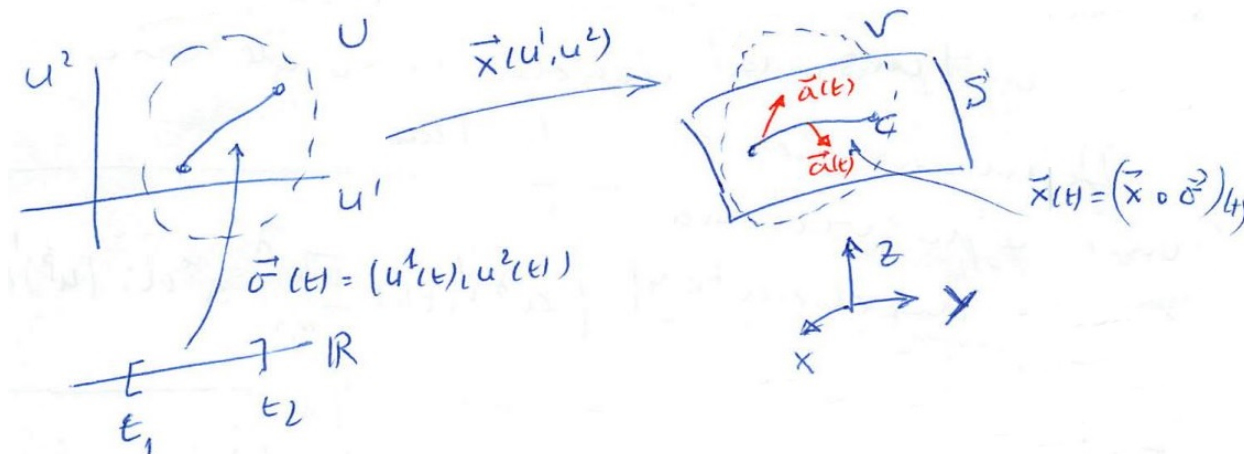 u²
U
u¹
x⃗(u¹,u²)
V
S
a⃗(t)
C
a⃗(t)
x⃗(t) = (x⃗ ∘ σ⃗)(t)
σ⃗(t) = (u¹(t), u²(t))
z
y
x
ℝ
[
]
t₁
t₂